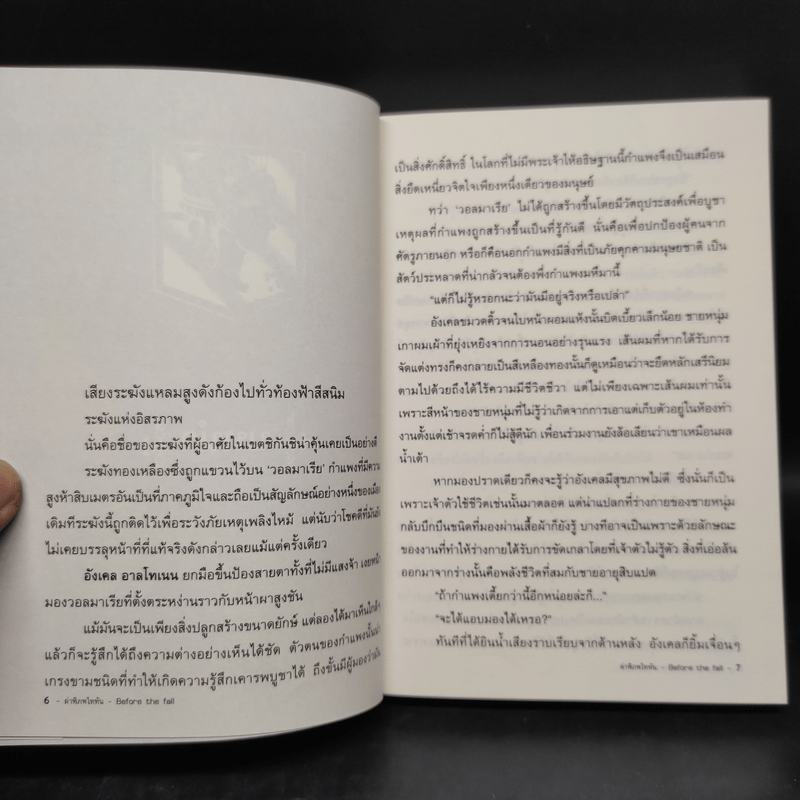 เสียงระฆังแหลมสูงดังก้องไปทั่วท้องฟ้าสีสนิม
ระฆังแห่งอิสรภาพ
นั่นคือชื่อของระฆังที่ผู้อาศัยในเขตชิกันชิน่าคุ้นเคยเป็นอย่างดี
ระฆังทองเหลืองซึ่งถูกแขวนไว้บน ‘วอลมาเรีย’ กำแพงที่มีความ
สูงห้าสิบเมตรอันเป็นที่ภาคภูมิใจและถือเป็นสัญลักษณ์อย่างหนึ่งของเมือง
เดิมทีระฆังนี้ถูกติดไว้เพื่อระวังภัยเหตุเพลิงไหม้ แต่นับว่าโชคดีที่มันยัง
ไม่เคยบรรลุหน้าที่ที่แท้จริงดังกล่าวเลยแม้แต่ครั้งเดียว
อังเคล อาลโทเนน ยกมือขึ้นป้องสายตาทั้งที่ไม่มีแสงจ้า เงยหน้า
มองวอลมาเรียที่ตั้งตระหง่านราวกับหน้าผาสูงชัน
แม้มันจะเป็นเพียงสิ่งปลูกสร้างขนาดยักษ์ แต่ลองได้มาเห็นใกล้ๆ
แล้วก็จะรู้สึกได้ถึงความต่างอย่างเห็นได้ชัด ตัวตนของกำแพงนั้นน่า
เกรงขามชนิดที่ทำให้เกิดความรู้สึกเคารพบูชาได้ ถึงขั้นมีผู้มองว่ามัน
6 - ผ่าพิภพไททัน - Before the fall
เป็นสิ่งศักดิ์สิทธิ์ ในโลกที่ไม่มีพระเจ้าให้อธิษฐานนี้กำแพงจึงเป็นเสมือน
สิ่งยึดเหนี่ยวจิตใจเพียงหนึ่งเดียวของมนุษย์
ทว่า ‘วอลมาเรีย’ ไม่ได้ถูกสร้างขึ้นโดยมีวัตถุประสงค์เพื่อบูชา
เหตุผลที่กำแพงถูกสร้างขึ้นเป็นที่รู้กันดี นั่นคือเพื่อปกป้องผู้คนจาก
ศัตรูภายนอก หรือก็คือนอกกำแพงมีสิ่งที่เป็นภัยคุกคามมนุษยชาติ เป็น
สัตว์ประหลาดที่น่ากลัวจนต้องพึ่งกำแพงมหึมานี้
“แต่ก็ไม่รู้หรอกนะว่ามันมีอยู่จริงหรือเปล่า”
อังเคลขมวดคิ้วจนใบหน้าผอมแห้งนั้นบิดเบี้ยวเล็กน้อย ชายหนุ่ม
เกาผมเผ้าที่ยุ่งเหยิงจากการนอนอย่างรุนแรง เส้นผมที่หากได้รับการ
จัดแต่งทรงก็คงกลายเป็นสีเหลืองทองนั้นก็ดูเหมือนว่าจะยึดหลักเสรีนิยม
ตามไปด้วยถึงได้ไร้ความมีชีวิตชีวา แต่ไม่เพียงเฉพาะเส้นผมเท่านั้น
เพราะสีหน้าของชายหนุ่มที่ไม่รู้ว่าเกิดจากการเอาแต่เก็บตัวอยู่ในห้องทำ
งานตั้งแต่เช้าจรดค่ำก็ไม่สู้ดีนัก เพื่อนร่วมงานยังล้อเลียนว่าเขาเหมือนผล
น้ำเต้า
หากมองปราดเดียวก็คงจะรู้ว่าอังเคลมีสุขภาพไม่ดี ซึ่งนั่นก็เป็น
เพราะเจ้าตัวใช้ชีวิตเช่นนั้นมาตลอด แต่น่าแปลกที่ร่างกายของชายหนุ่ม
กลับบึกบึนชนิดที่มองผ่านเสื้อผ้าก็ยังรู้ บางทีอาจเป็นเพราะด้วยลักษณะ
ของงานที่ทำให้ร่างกายได้รับการขัดเกลาโดยที่เจ้าตัวไม่รู้ตัว สิ่งที่เอ่อล้น
ออกมาจากร่างนั้นคือพลังชีวิตที่สมกับชายอายุสิบแปด
“ถ้ากำแพงเตี้ยกว่านี้อีกหน่อยล่ะก็...”
“จะได้แอบมองได้เหรอ?”
ทันทีที่ได้ยินน้ำเสียงราบเรียบจากด้านหลัง อังเคลก็ยิ้มเจื่อนๆ
ผ่าพิภพไททัน - Before the fall - 7